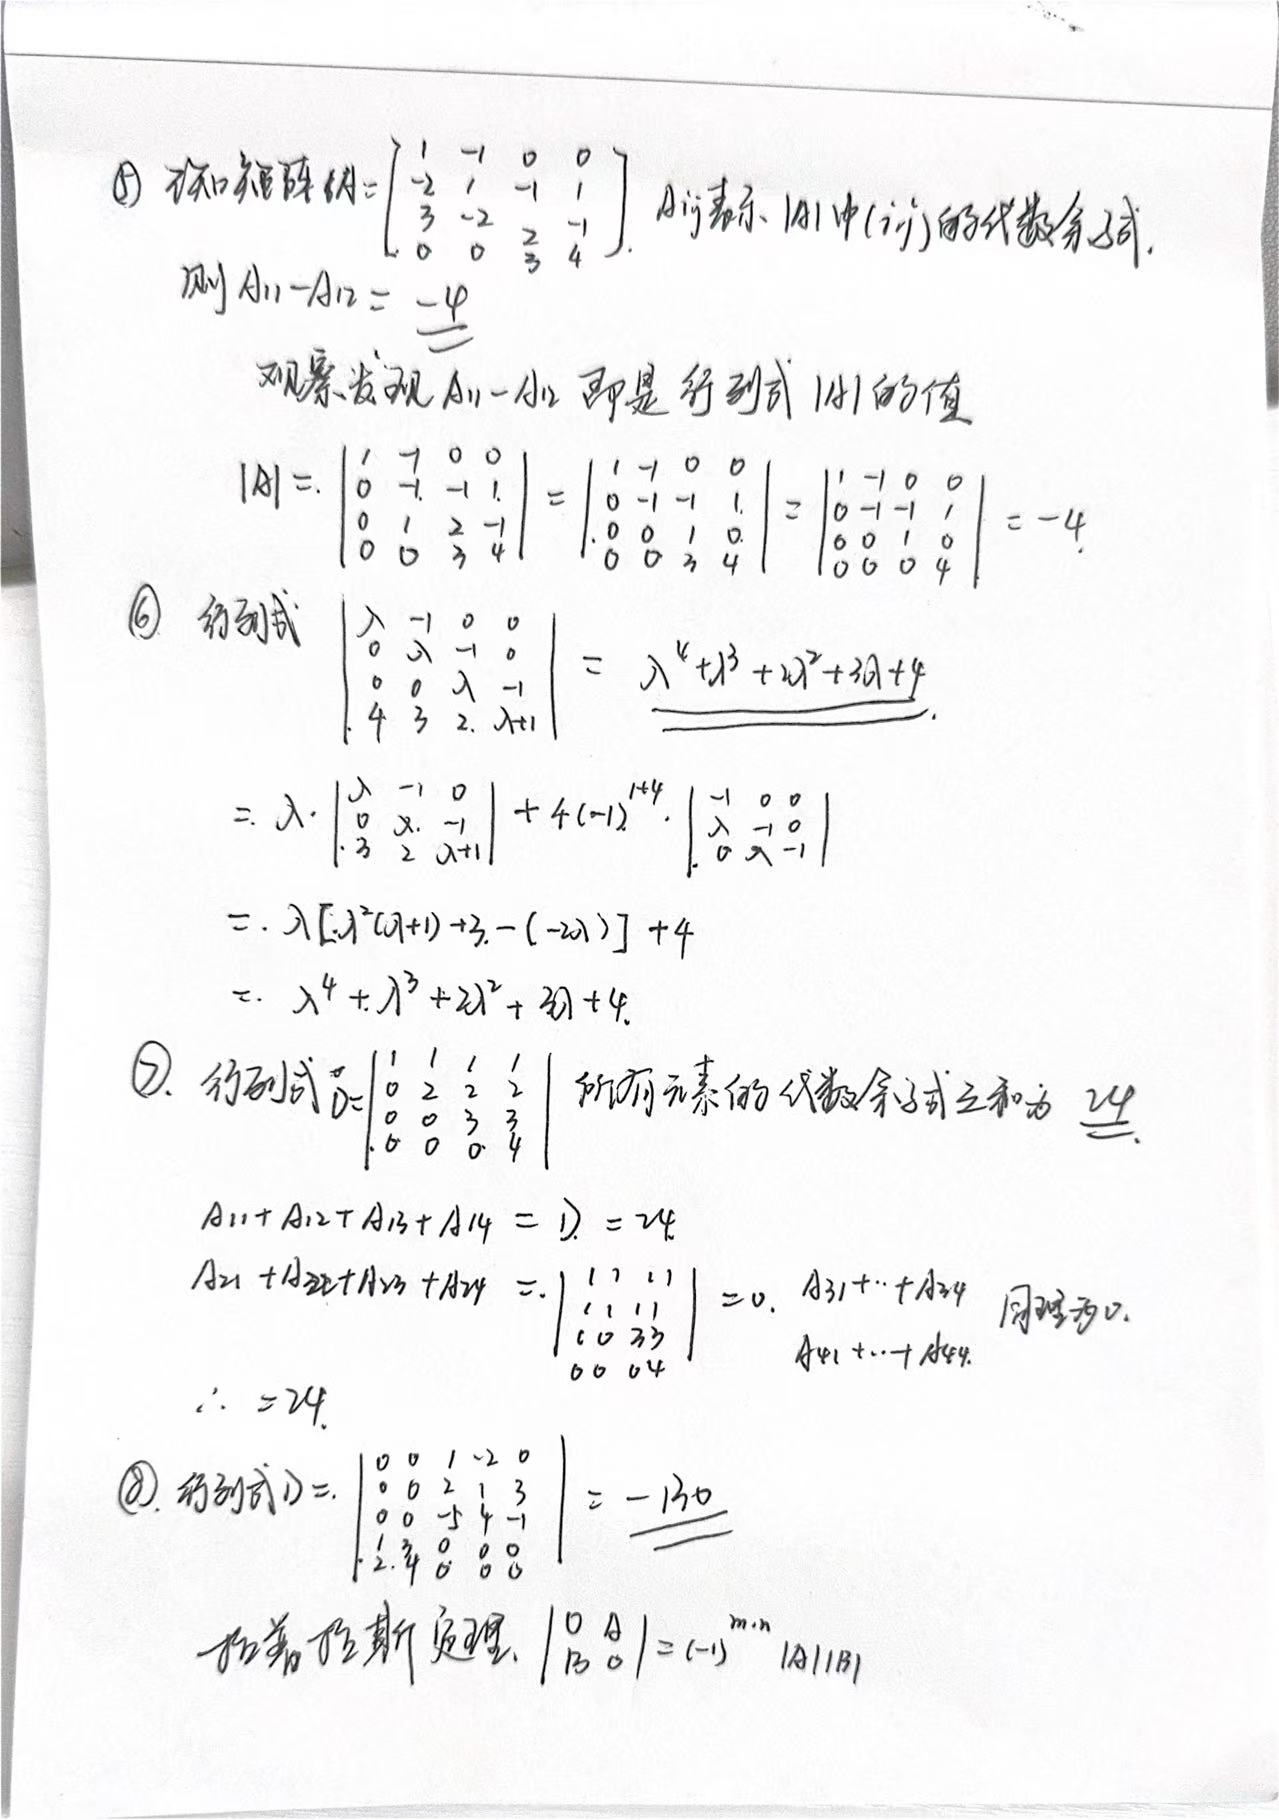 ⑤ 已知矩阵A= [ 1 -1 0 0
-2 1 -1 1
3 -2 2 -1
0 0 3 4 ]. Aij表示|A|中(i,j)的代数余子式.
则 A11-A12 = -4
观察发现 A11-A12 即是行列式|A|的值
|A| = | 1 -1 0 0 | = | 1 -1 0 0 | = | 1 -1 0 0 | = -4.
0 -1 -1 1 0 -1 -1 1 0 -1 -1 1
0 1 2 -1 0 0 1 0 0 0 1 0
0 0 3 4 0 0 3 4 0 0 0 4
⑥ 行列式 | λ -1 0 0
0 λ -1 0
0 0 λ -1
4 3 2 λ+1 | = λ⁴+λ³+2λ²+3λ+4.
= λ· | λ -1 0 | + 4(-1)^{1+4}· | -1 0 0 |
0 λ -1 λ -1 0
3 2 λ+1 0 λ -1
= λ[λ²(λ+1)+3-(-2λ)]+4
= λ⁴+λ³+2λ²+3λ+4.
⑦. 行列式D= | 1 1 1 1
0 2 2 2
0 0 3 3
0 0 0 4 | 所有元素的代数余子式之和为 24.
A11+A12+A13+A14 = D = 24.
A21+A22+A23+A24 = | 1 1 1 1 | = 0. A31+…+A34 同理为0.
1 1 1 1 A41+…+A44.
0 0 3 3
0 0 0 4
∴ =24.
⑧. 行列式D= | 0 0 1 -2 0
0 0 2 1 3
0 0 -5 4 -1
1 3 0 0 0
2 4 0 0 0 | = -130
拉普拉斯定理. | 0 A | = (-1)^{m·n} |A||B|
B 0